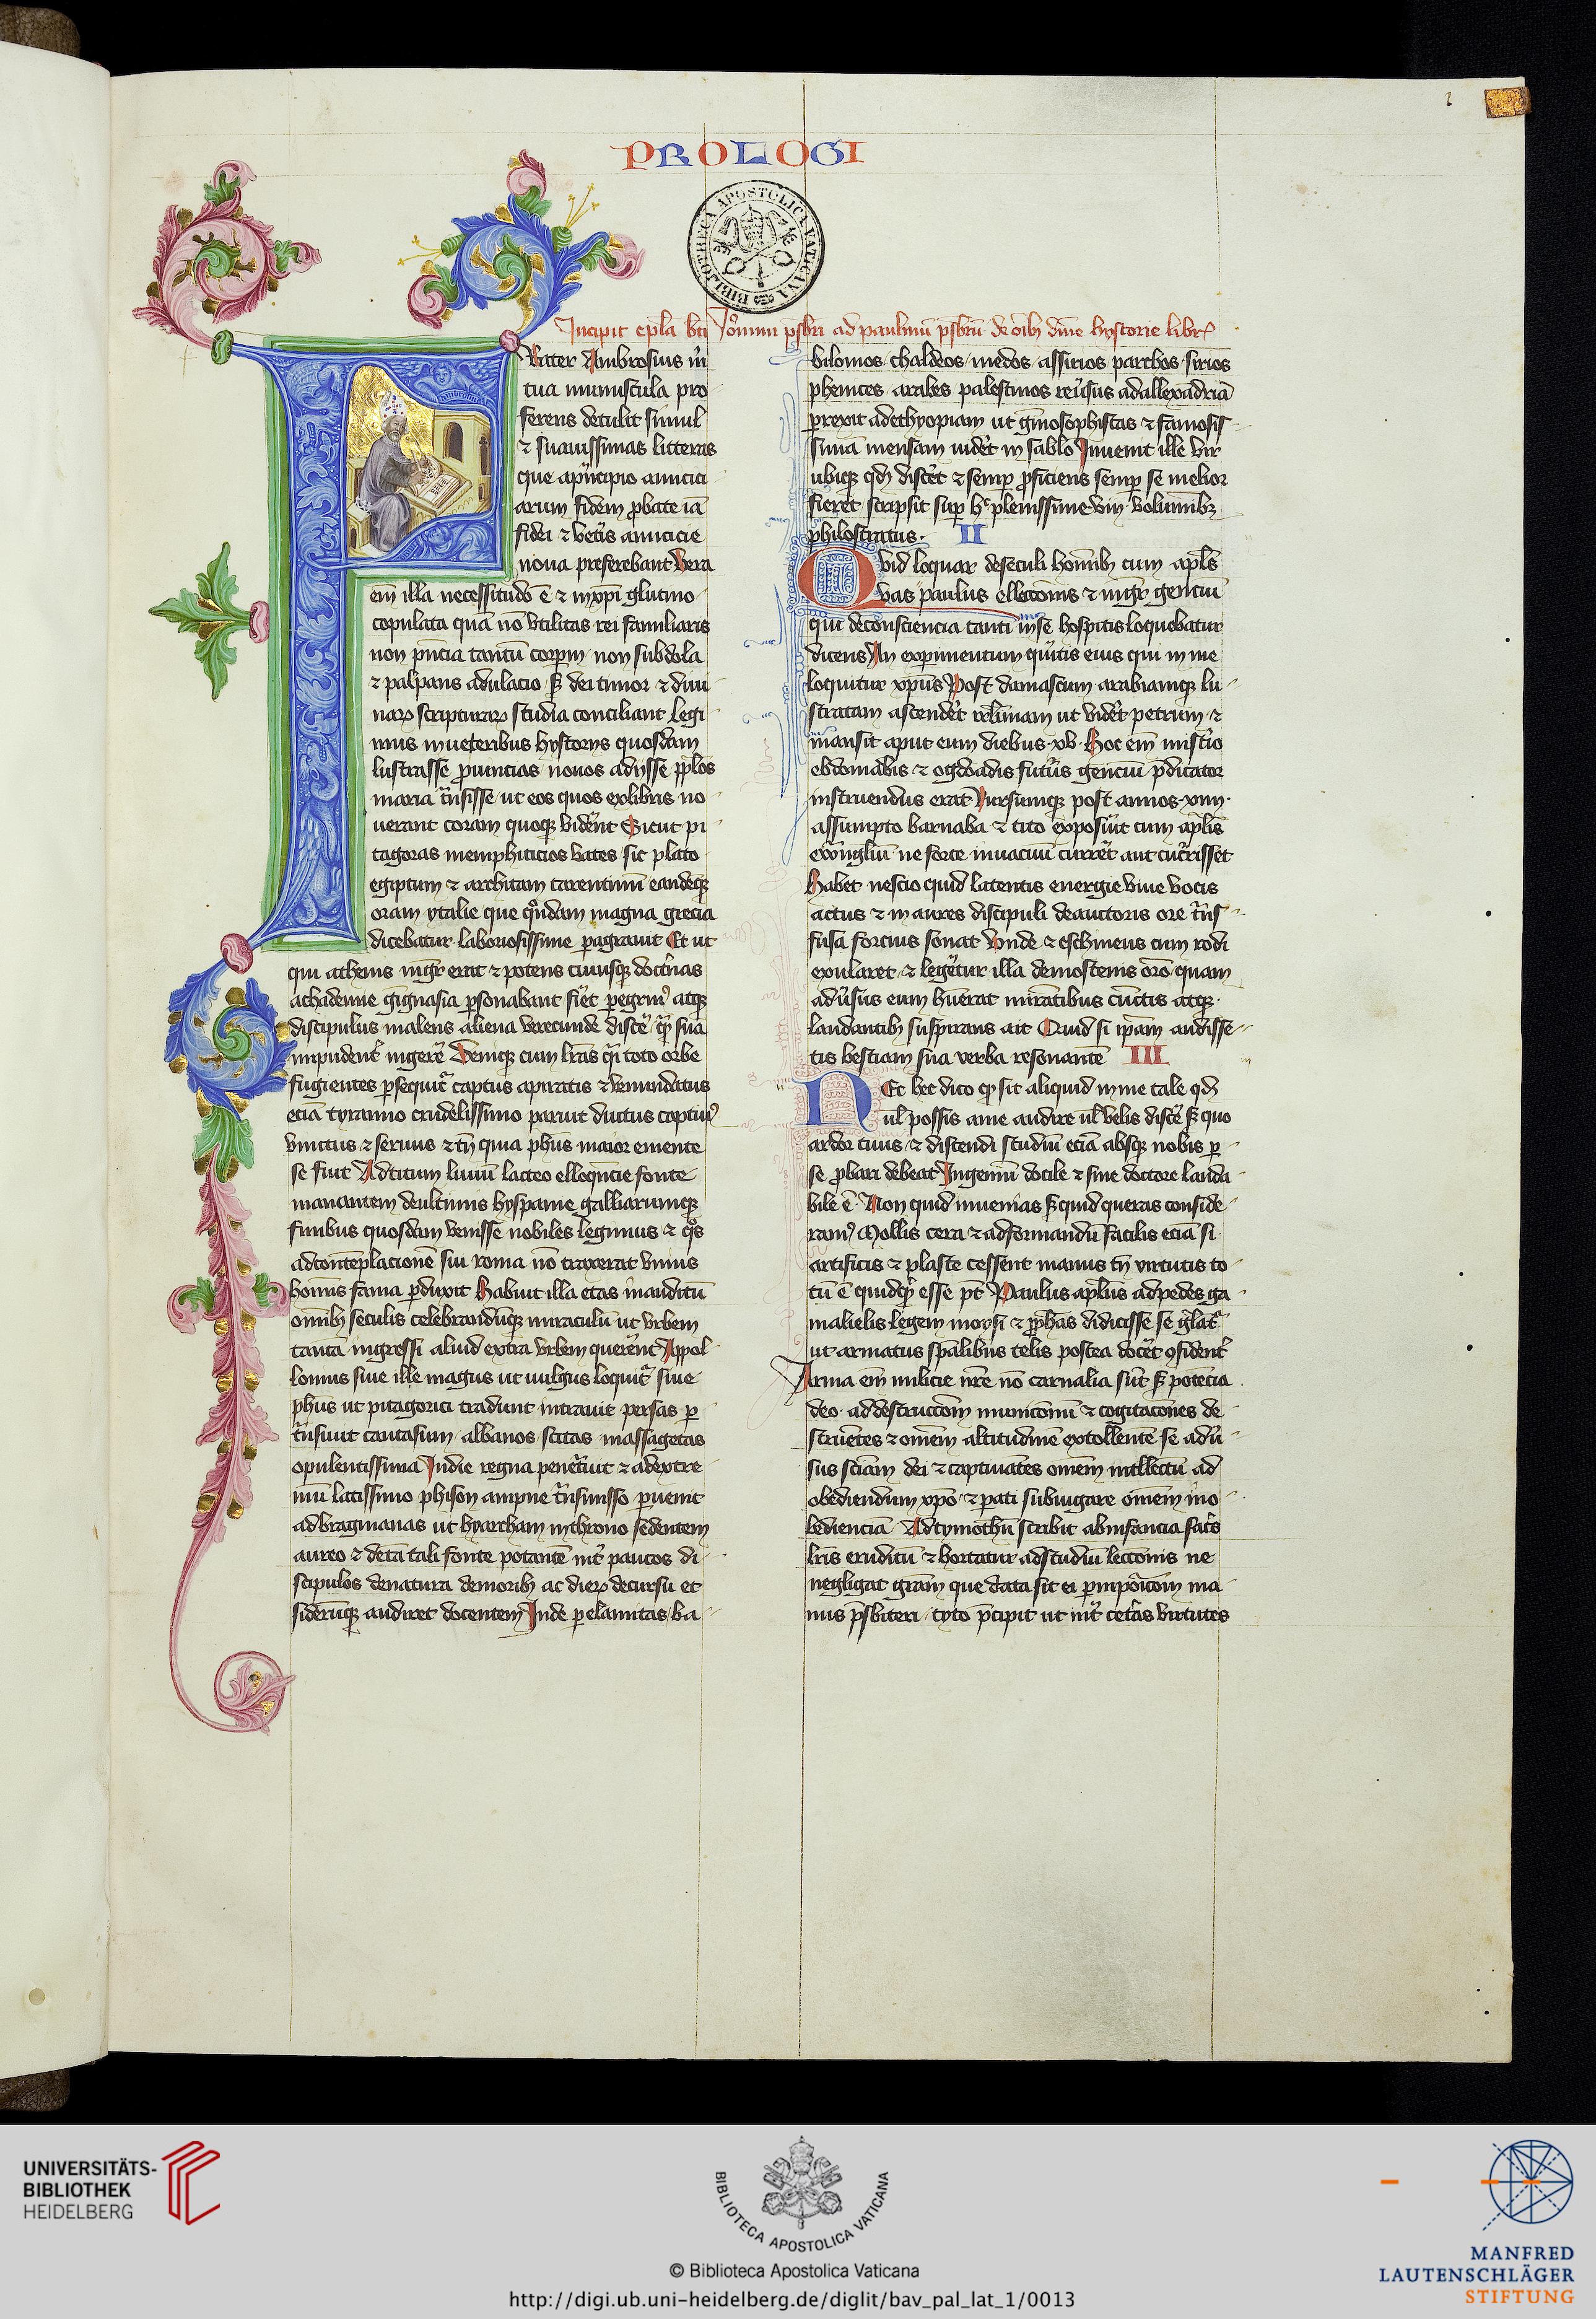 PROLOGI
2
BIBLIOTHECA APOSTOLICA VATICANA
Incipit epl̄a bti Jeronimi p̄sbri ad paulinū p̄sbrū de oīb diuīe hystorie libr
Frater Ambrosius m̄
tua munuscula pro
ferens detulit simul
⁊ suauissimas litteras
que apͥncipio amicici
arum fidem ꝓbate iā
fidei ⁊ vetͥis amicicie
noua preferebant Vera
em̄ illa necessitudo ē ⁊ in xp̄i glutino
copulata quā nō vtilitas rei familiaris
non pn̄cia tantū corpm non subdola
⁊ palpans adulacio sꝫ dei timor ⁊ diui
naꝝ scripturaꝝ studia conciliant Legi
mus in ueteribus hystorijs quosdam
lustrasse ꝓuincias nouos adysse pp̄los
maria tn̄sisse ut eos quos ex libris no
uerant coram quoqꝫ vidērt Sicut pi
tagoras memphiticios vates sic plato
egiptum ⁊ architam tarentinū eandeqꝫ
oram ytalie que qn̄dam magna grecia
dicebatur laboriosissime ꝑagrauit Et ut
qui athenis mgr̄ erat ⁊ potens cuiusqꝫ doctͥnas
achademie gignasia ꝑsonabant fiēt ꝑegrinꝰ atqꝫ
discipulus malens aliena verecunde discē qͣ̄ sua
impudentͥ ingerē Deniqꝫ cum lr̄as qͣ̄ toto orbe
fugientes ꝑsequitͥ captus a piratis ⁊ venundatus
etiā tyranno crudelissimo paruit ductus captiuꝰ
vinctus ⁊ seruus ⁊ tn̄ quia phūs maior emente
se fuit Ad titum liuiū lacteo elloqn̄cie fonte
manantem de ultimis hyspanie galliarumqꝫ
finibus quosdam venisse nobiles legimus ⁊ qͦs
ad contēplacionē sui roma nō traxerat vnius
hoīnis fama ꝑduxit Habuit illa etas inauditū
omīb seculis celebrandūqꝫ miraculū ut vrbem
tantā ingressi aliud extra vrbem querērt Appol
lonius siue ille magus ut uulgus loquitͥ siue
phūs ut pitagorici tradunt intrauit persas ꝑ
tn̄siuit caucasum albanos scitas massagetas
opulentissima Indie regna penetͥuit ⁊ ad extre
mū latissimo phison ampne tn̄smisso ꝑuenit
ad bragmanas ut hyarcham in throno sedentem
aureo ⁊ de tātali fonte potantē intͥ paucos di
scipulos de natura de morib ac dieꝝ decursu et
siderūqꝫ audiret docentem Inde ꝑ elamitas ba
bilonios chaldeos medos assirios parthos sirios
phenices arabes palestinos reūsus ad allexādriā
ꝑrexit ad ethyopiam ut gīnosophistas ⁊ famosis
simā mensam uidēt in sablo Inuenit ille vir
ubiqꝫ qd̄ discēt ⁊ semꝑ ꝓficiens semꝑ se melior
fieret scripsit suꝑ hͨ plenissime viij volumībꝫ
philostratus. II
Quid loquar de seculi hoīnib cum apl̄s
vas paulus ellectōnis ⁊ mgr̄ genciū
qui de consciencia tanti in se hospitis loquebatur
dicens An exꝑimentum quītis eius qui in me
loquitur xp̄us Post damascum arabiamqꝫ lu
stratam ascendēt irlīmam ut vidēt petrum ⁊
mansit aput eum diebus xv Hoc em̄ mistͥio
ebdomadis ⁊ ogdoadis futūs genciū p̄dicator
instruendus erat Rursumqꝫ post annos xiiij
assumpto barnaba ⁊ tito exposuit cum apl̄is
ewāngliū ne forte in uacuū currēt aut cucͥrisset
Habet nescio quid latentis energie viue vocis
actus ⁊ in aures discipuli de auctoris ore tn̄s
fusa forcius sonat Vnde ⁊ eschineus cum rodi
exularet ⁊ legētur illa demostenis orō quam
adūsus eum hūerat mirātibus cūctis atqꝫ
laudantib suspirans ait Quid si ip̄am audisse
tis bestiam sua verba resonantē III
Nec hec dico qꝫ sit aliquid in me tale qd̄
ul̄ possis a me audire ul̄ velis discē sꝫ quo
ardor tuus ⁊ discendi studiū etiā absqꝫ nobis ꝑ
se ꝓbari debeat Ingeniū docile ⁊ sine doctore lauda
bile ē Non quid inuenias sꝫ quid queras conside
ramꝰ Mollis cera ⁊ ad formandū facilis etiā si
artificis ⁊ plaste cessent manus tn̄ virtutis to
tū ē quidqͥd esse pt̄ Paulus apl̄us ad pedes ga
malielis legem moysi ⁊ pp̄has didicisse se gl̄atͥ
ut armatus sp̄alibus telis postea docēt ꝯfidentͥ
Arma em̄ milicie nr̄e nō carnalia sūt sꝫ potēcia
deo ad destructōm municōnū ⁊ cogitacōnes de
struētes ⁊ omēm altitudinē extollentē se adū
sus sciam̄ dei ⁊ captiuātes omēm intllectū ad
obediendum xp̄o ⁊ ꝑati subiugare omēm ino
bedienciā Ad tymothū scribit ab infancia sacͥs
lr̄is eruditū ⁊ hortatur ad studiū lectōnis ne
negligat grām que data sit ei ꝑ inpoītcōm ma
nus p̄sbiteri tyto p̄cipit ut intͥ cetͥas virtutes
UNIVERSITÄTS-
BIBLIOTHEK
HEIDELBERG
BIBLIOTECA APOSTOLICA VATICANA
© Biblioteca Apostolica Vaticana
http://digi.ub.uni-heidelberg.de/diglit/bav_pal_lat_1/0013
MANFRED
LAUTENSCHLÄGER
STIFTUNG